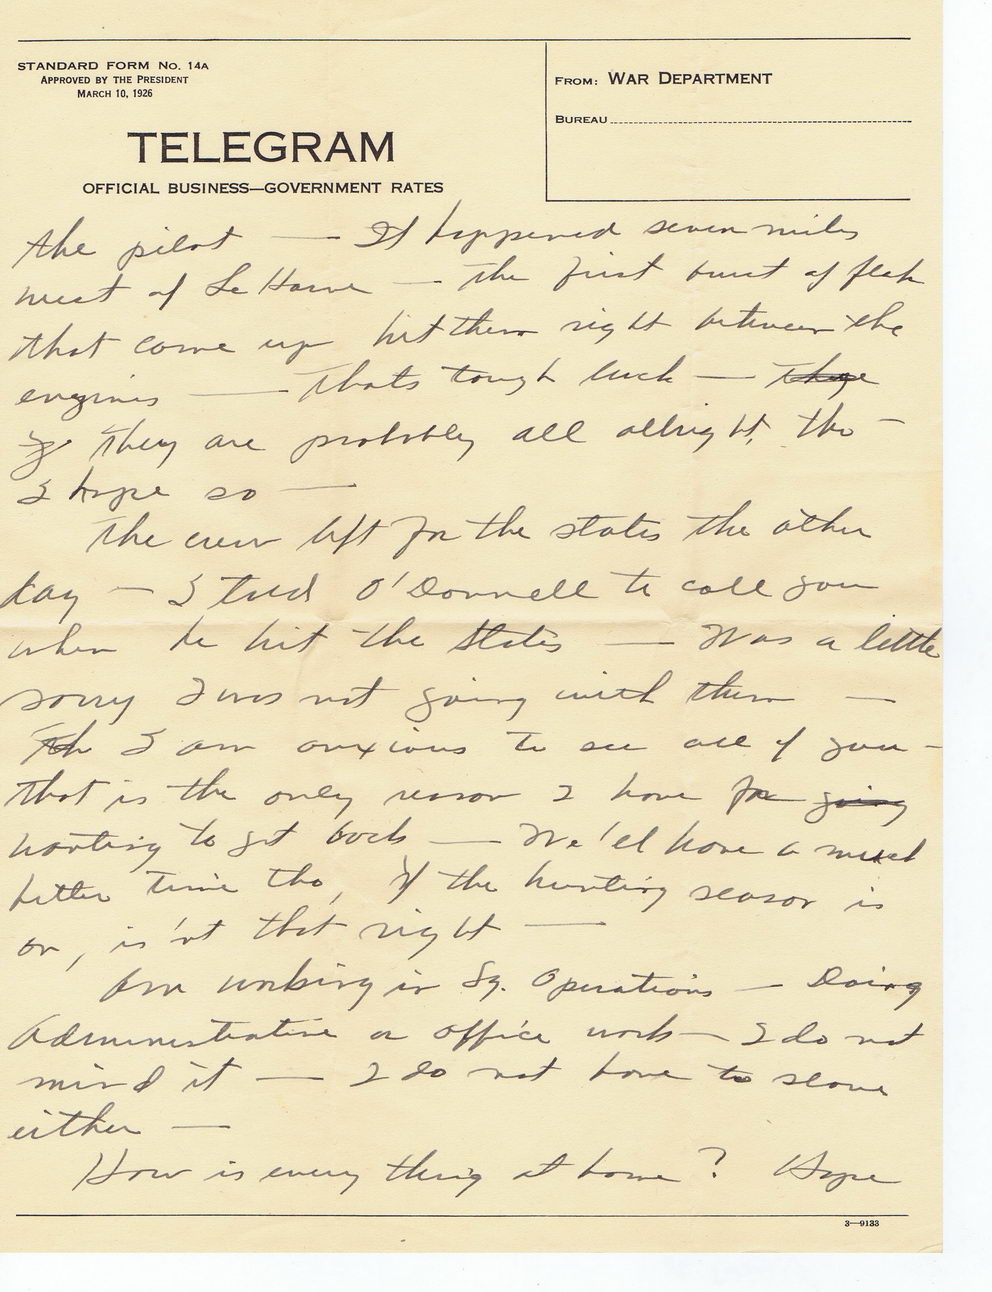 STANDARD FORM No. 14A
APPROVED BY THE PRESIDENT
MARCH 10, 1926
TELEGRAM
OFFICIAL BUSINESS—GOVERNMENT RATES
FROM: WAR DEPARTMENT
BUREAU
the pilot — It happened seven miles
west of Le Havre — the first burst of flak
that come up hit them right between the
engines — thats tough luck —
They are probably all allright, tho —
I hope so —
The crew left for the states the other
day — I told O'Donnell to call you
when he hit the States — Was a little
sorry I was not going with them —
I am anxious to see all of you —
that is the only reason I have for going
wanting to get back — We'll have a much
better time tho, if the hunting season is
on, is'nt that right —
Am working in Sq. Operations — Doing
Administrative or office work — I do not
mind it — I do not have to slave
either —
How is every thing at home? Hope
3—9133